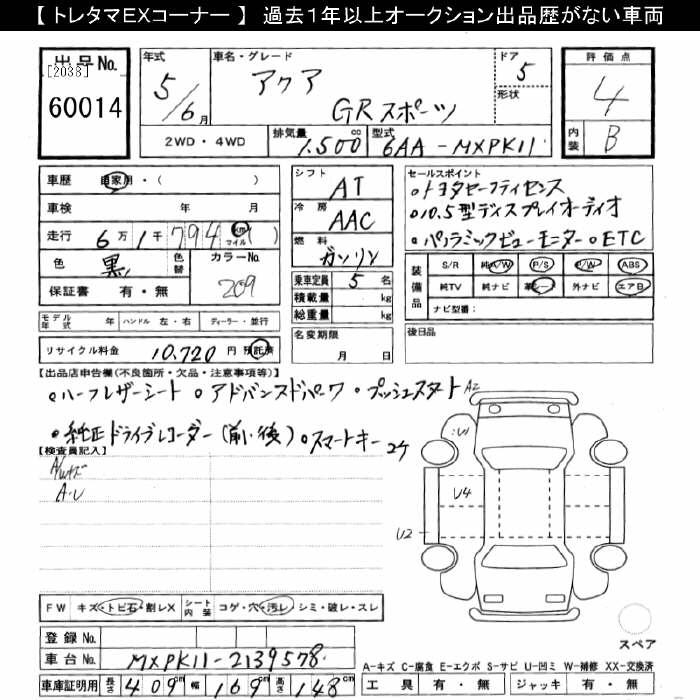 【 トレタマEXコーナー 】 過去1年以上オークション出品歴がない車両
出品No.
[2038]
60014
年式 5/6月
車名・グレード アクア
GRスポーツ
ドア 5
形状
評価点 4
内装 B
2WD・4WD
排気量 1.500cc
型式 6AA-MXPK11
車歴 自家用・( )
車検 年 月
走行 6万1千794km マイル
色 黒
色替
カラーNo. 209
保証書 有・無
モデル年式 年 ハンドル 左・右 ディーラー・並行
リサイクル料金 10,720円 預託済
シフト AT
冷房 AAC
燃料 ガソリン
乗車定員 5名
積載量 kg
総重量 kg
名変期限 月 日
セールスポイント
・トヨタセーフティセンス
・10.5型ディスプレイオーディオ
・パノラミックビューモニター ・ETC
装備品
S/R 純A/W P/S P/W ABS
純TV 純ナビ 革シート 外ナビ エアB
ナビ型番:
後日品
【出品店申告欄(不良箇所・欠品・注意事項等)】
・ハーフレザーシート ・アドバンスドパーク ・プッシュスタート
・純正ドライブレコーダー(前・後) ・スマートキー2ケ
【検査員記入】
A/Wキズ
A・U
A2
U1
U4
U2
FW キズ・トビ石・割レX シート内装 コゲ・穴・汚レ・シミ・破レ・スレ
スペア
登録No.
車台No. MXPK11-2139578
A-キズ C-腐食 E-エクボ S-サビ U-凹ミ W-補修 XX-交換済
車庫証明用 長さ 409cm 幅 169cm 高さ 148cm
工具 有・無 ジャッキ 有・無